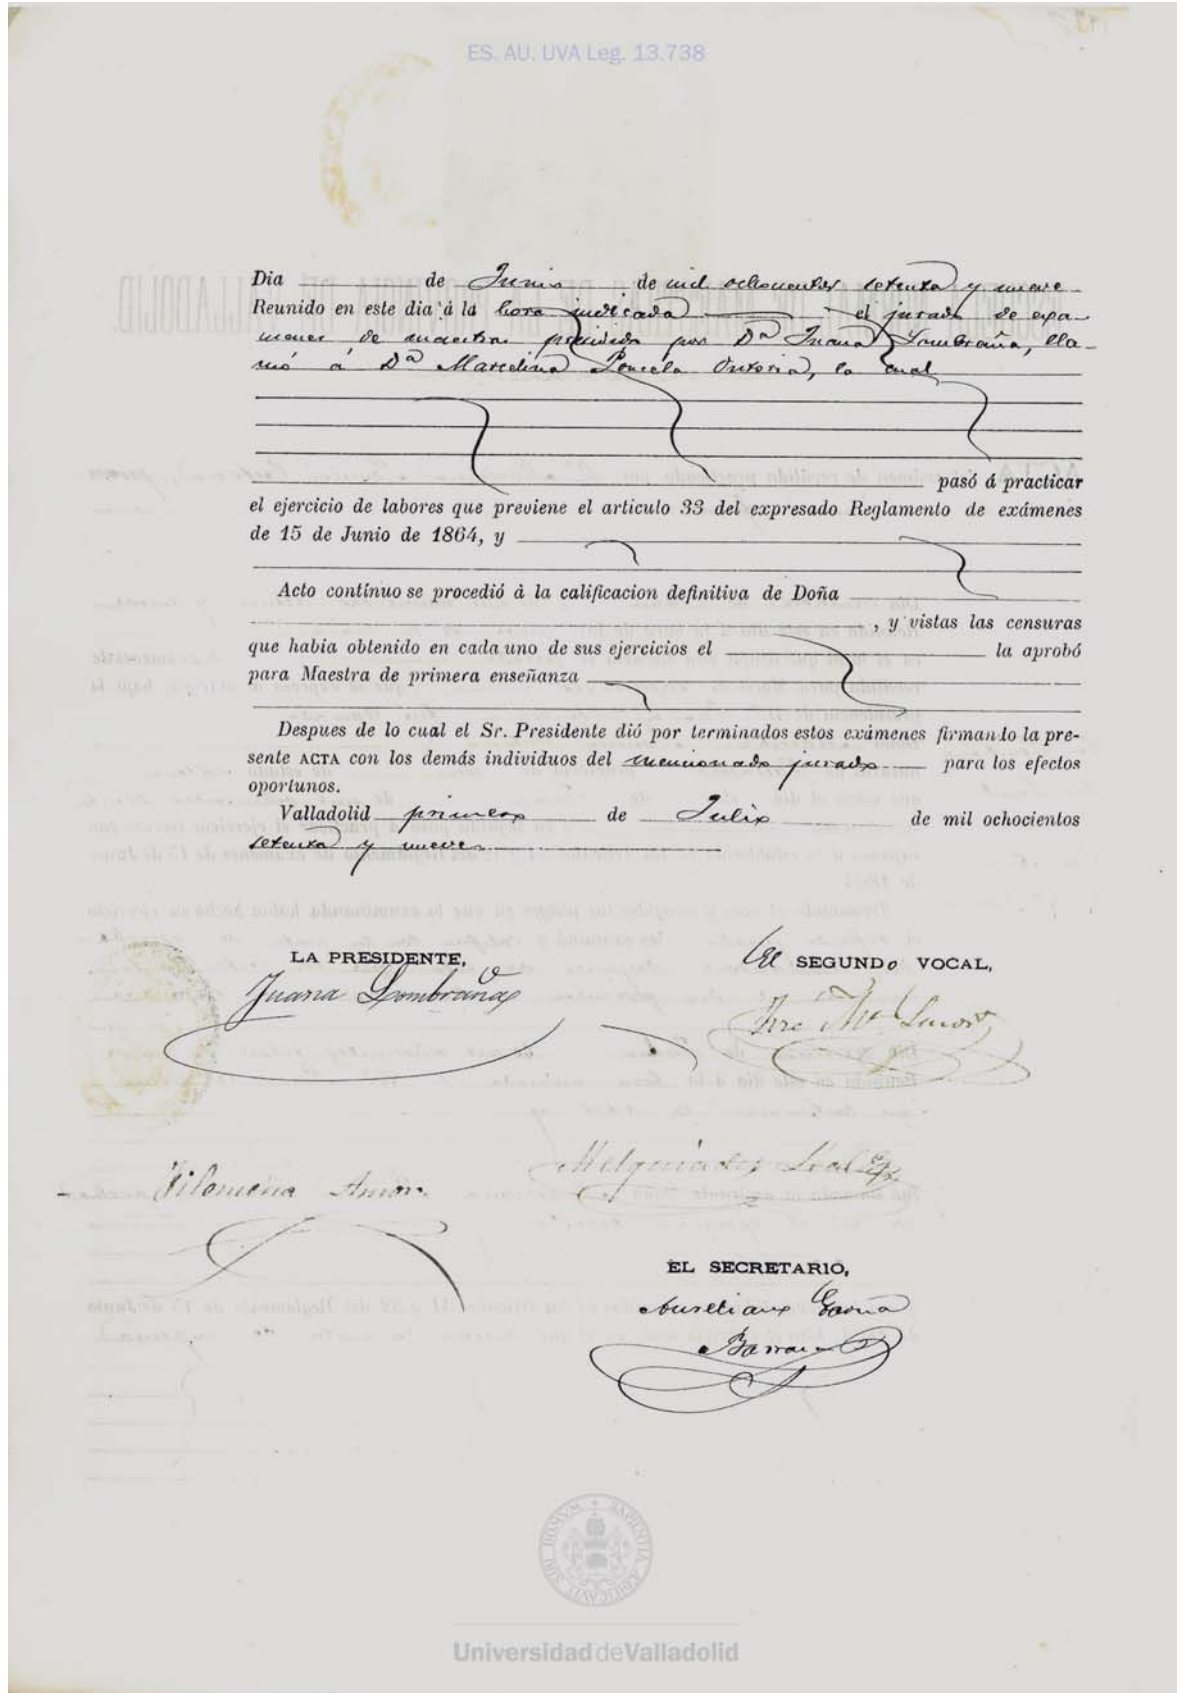 ES. AU. UVA Leg. 13.738
Dia de Junio de mil ochocientos setenta y nueve
Reunido en este dia á la hora indicada el jurado de exa-
menes de maestras presidido por Dª Juana Lombraña, lla-
mó á Dª Marcelina Poncela Ontoria, la cual
pasó á practicar
el ejercicio de labores que previene el articulo 33 del expresado Reglamento de exámenes
de 15 de Junio de 1864, y
Acto contínuo se procedió à la calificacion definitiva de Doña
, y vistas las censuras
que habia obtenido en cada uno de sus ejercicios el la aprobó
para Maestra de primera enseñanza
Despues de lo cual el Sr. Presidente dió por terminados estos exámenes firmando la pre-
sente ACTA con los demás individuos del mencionado jurado para los efectos
oportunos.
Valladolid primero de Julio de mil ochocientos
setenta y nueve
LA PRESIDENTE,
SEGUNDO VOCAL,
Juana Lombraña
Filomena Amor
Melquiades Leal
EL SECRETARIO,
Aureliano Garcia
Barrasa
Universidad de Valladolid